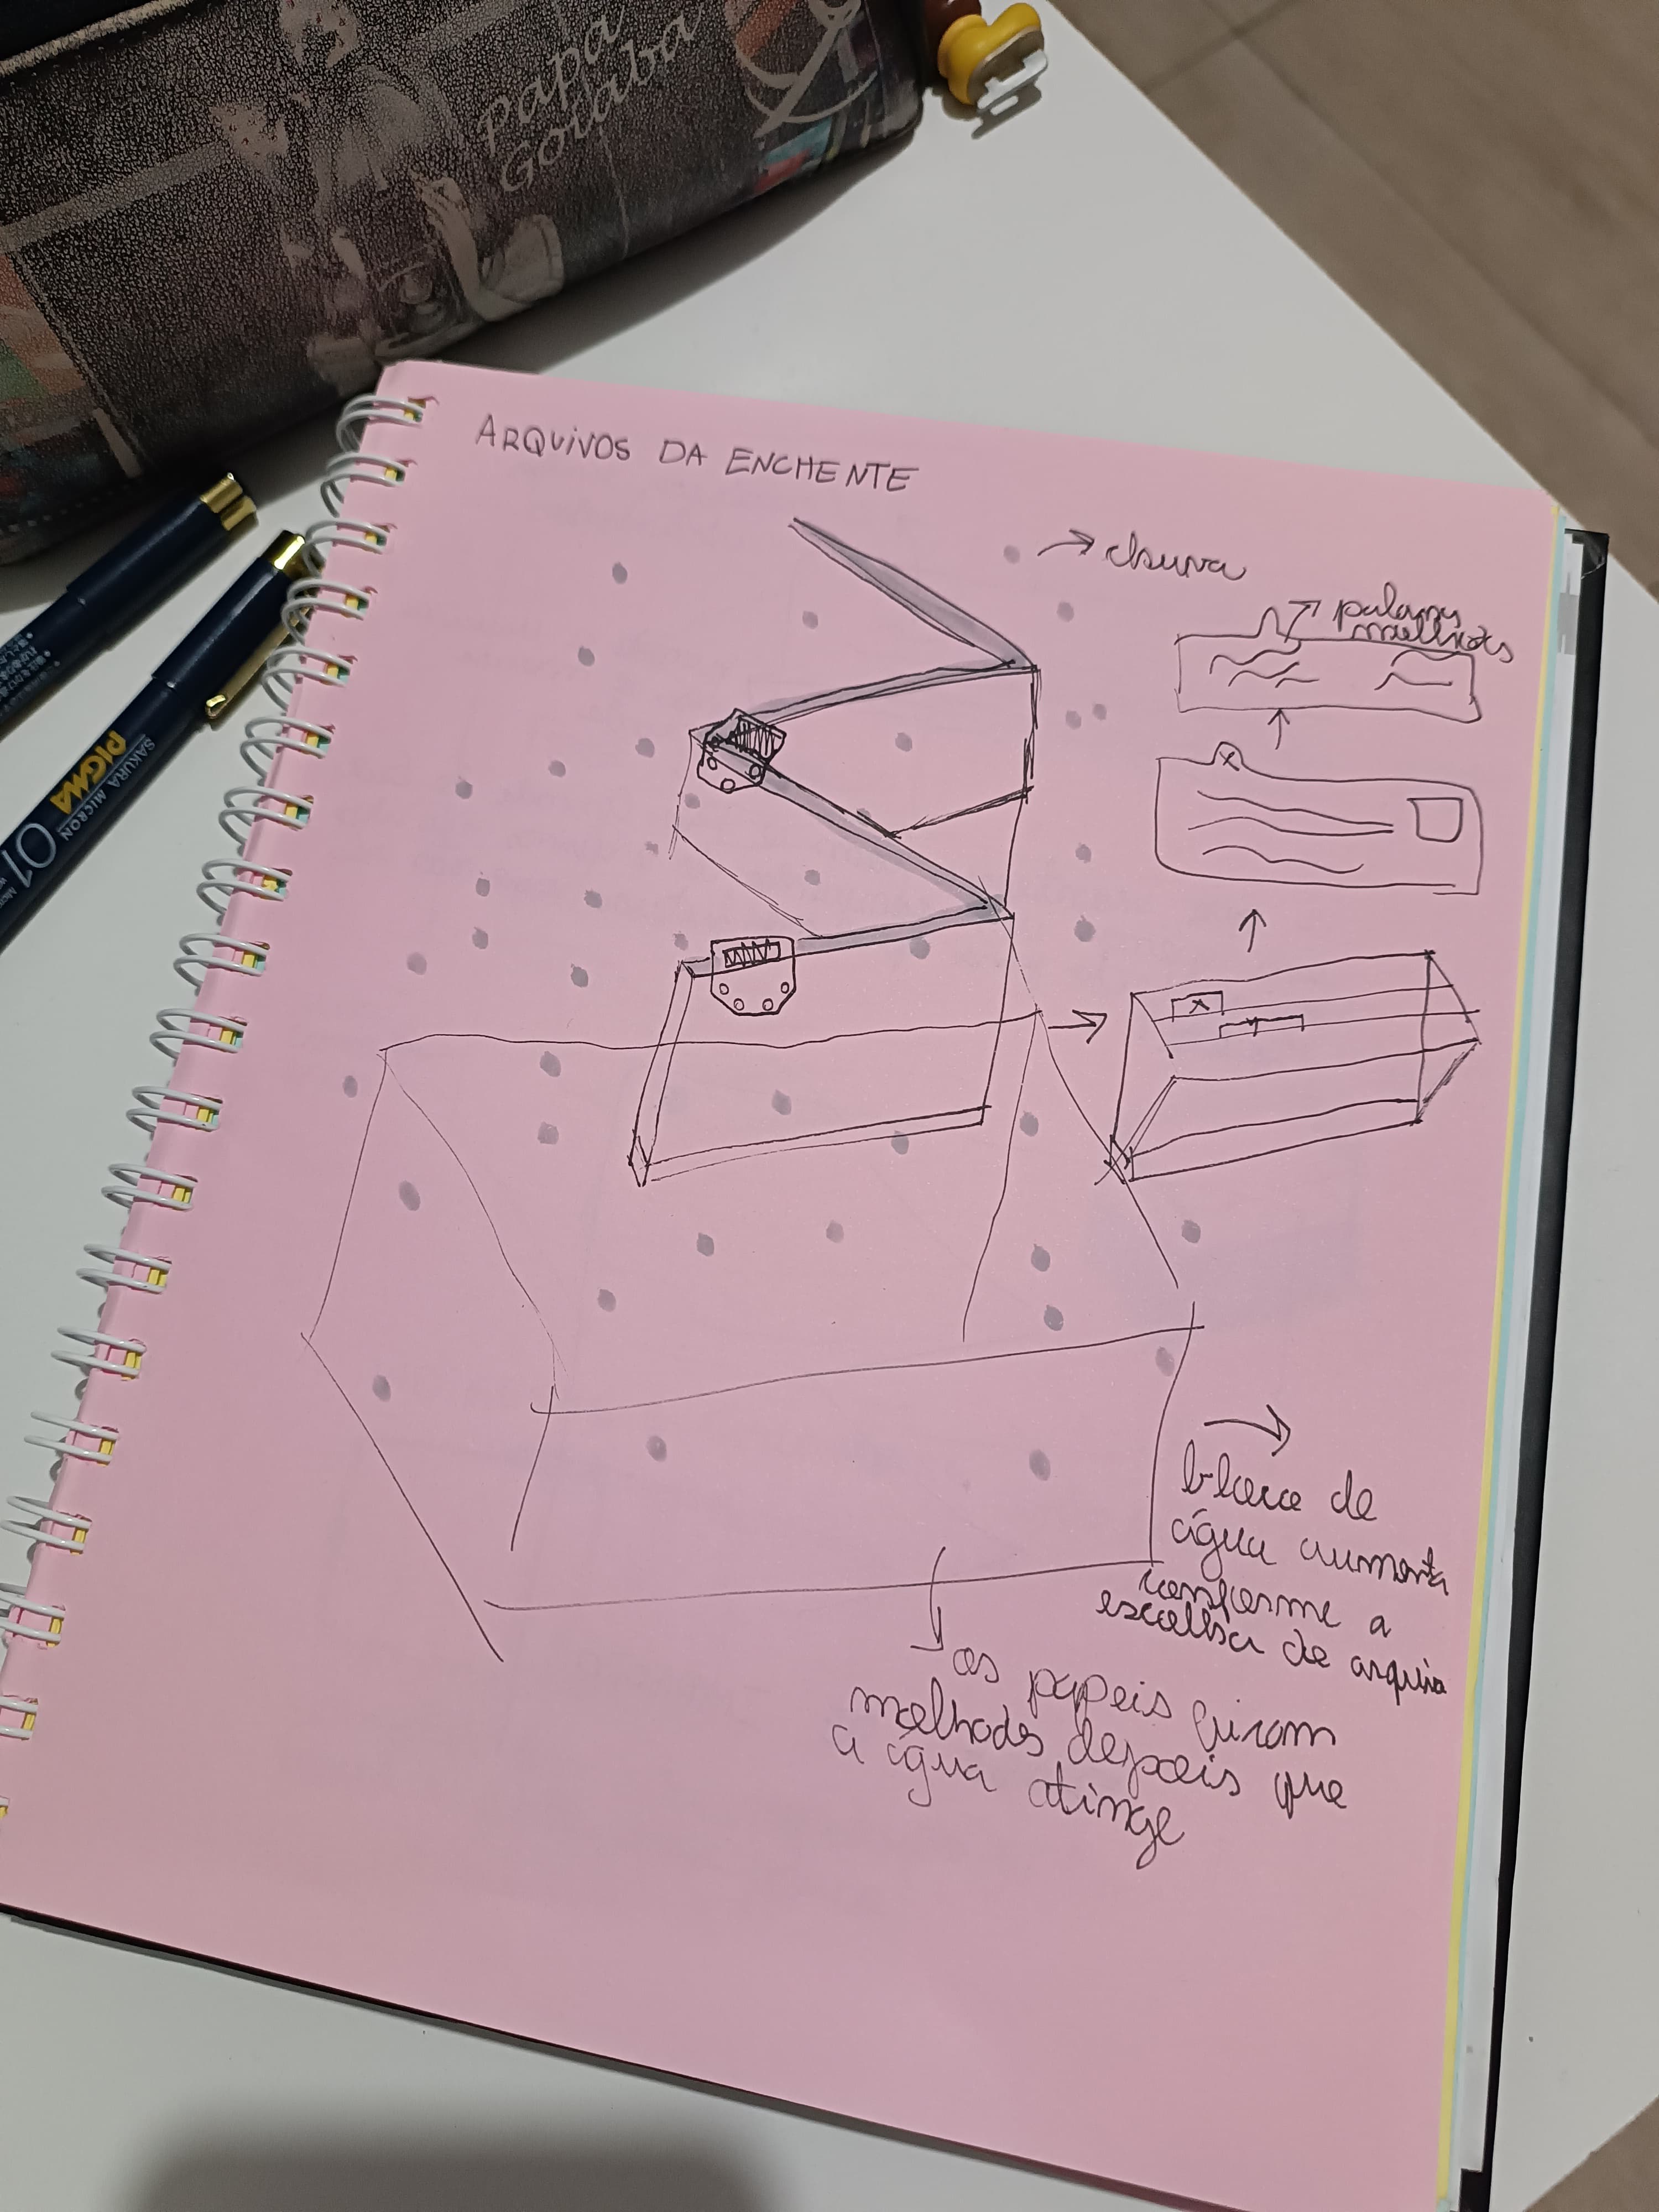 papa
goiaba
ARQUIVOS DA ENCHENTE
chuva
molhados
X
X
bloco de
água aumenta
conforme a
escolha de arquivo
os papeis ficam
molhados depois que
a água atinge
SAKURA MICRON
PIGMA
01